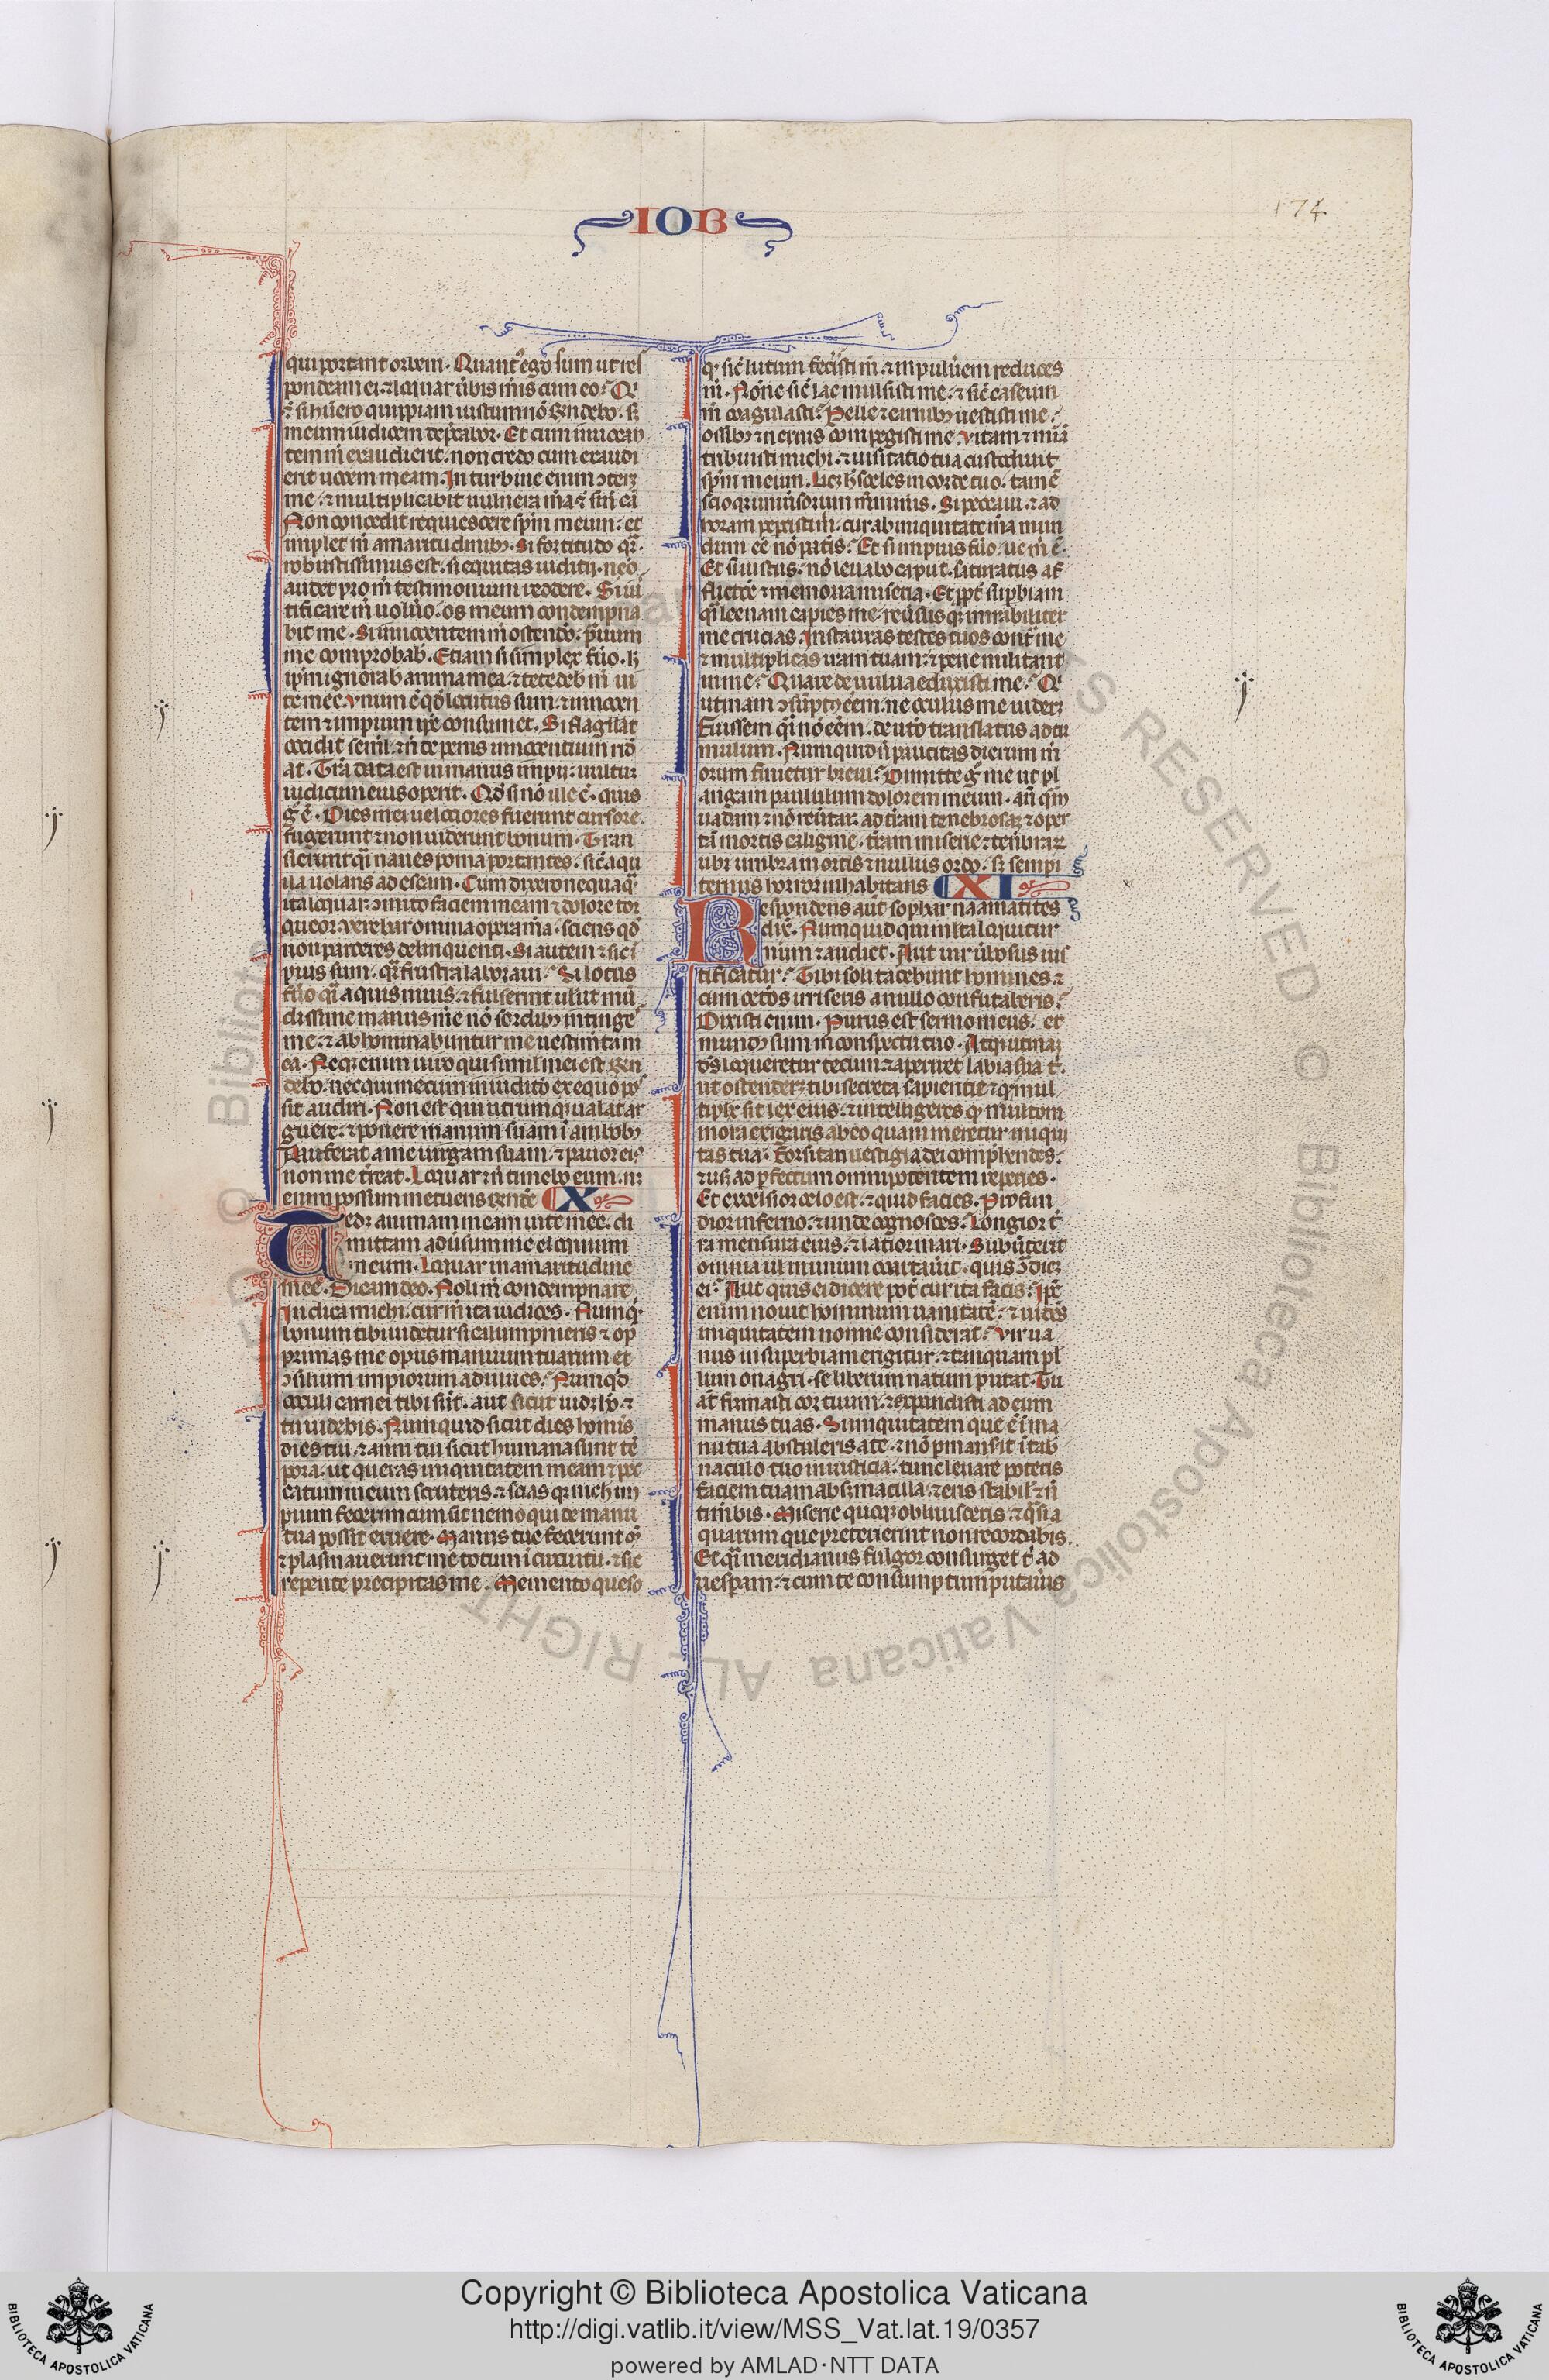 IOB
174
qui portant orbem. Quant᷒ ego sum ut res
pondeam ei. ⁊ loquar u̾bis m̄is cum eo. Q̄
⁊ si hūero quippiam iustum nō r̄ndebo. s̄
meum iudicem dep̄cabor. Et cum inuocan
tem m̄ exaudierit. non credo cum exaudi
erit uocem meam. In turbine enim ↄteret
me. ⁊ multiplicabit uulnera m̄a ⁊ sin̄ cā
Non concedit requiescere sp̄m meum. et
implet m̄ amaritudinib᷒. Si fortitudo qr̄.
robustissimus est. si equitas iudicii. nēo
audet pro m̄ testimonium reddere. Si iu
tificare m̄ uolūo. os meum condempna
bit me. Si innocentem m̄ ostendō. p̄uum
me comprobab. Etiam si simplex fūo. h̄
ip̄m ignorab anima mea. ⁊ tedeb m̄ ui
te mee. Vnum ē qd̄ locutus sum. ⁊ innocen
tem ⁊ impium ip̄e consumet. Si flagellat
occidit seml̄. ⁊ n̄ de penis innocentium rid
at. Tr̄a data est in manus impii. uultum
iudicum eius operit. Qd̄ si nō ille ē. quis
g̊ ē. Dies mei uelociores fuerunt cursore.
fugerunt ⁊ non uiderunt bonum. Tran
sierunt qi̾ naues poma portantes. sic̄ aqu
ila uolans ad escam. Cum dixero nequaq̄
ita loquar. ↄmuto faciem meam ⁊ dolore tor
queor. Verebar omnia opera m̄a. sciens qd̄
non parceres delinquenti. Si autem ⁊ sic ī
pius sum. qr̄ frustra laboraui. Si lotus
fūo q̄i aquis niuis. ⁊ fulserint ul̄ut mū
dissime manus mē. nō sordib᷒ intinges
me. ⁊ abhominabuntur me uestim̄ta m
ea. Neq᷒ enim uiro qui simil̄ mei est r̄en
debo. nec qui mecum in iudicō ex equo pos
sit audiri. Non est qui utrumq᷒ ualeat ar
guere. ⁊ ponere manum suam ī ambob᷒
Auferat a me uirgam suam. ⁊ pauor ei᷒
non me t̄reat. Loquar ⁊ n̄ timebo eum. n̄
enim possum metuens r̄ondē X
Tedet animam meam uite mee. di
mittam adūsum me eloquium
meum. Loquar in amaritudine
mee. Dicam deo. Noli m̄ condempnare
Indica michi. cur m̄ ita iudices. Numqd̄
bonum tibi uidetur si calumpnieris ⁊ op
primas me opus manuum tuarum et
ↄsilium impiorum adiuues. Numqd̄
oculi carnei tibi sūt. aut sicut uidet hō. ⁊
tu uidebis. Numquid sicut dies hominis
dies tui. ⁊ anni tui sicut humana sunt tē
pora. ut queras iniquitatem meam ⁊ pec
catum meum scruteris. ⁊ scias q᷒ nich im
pium fecerim cum sit nemo qui de manu
tua possit eruere. Manus tue fecerunt m̄
⁊ plasmauerunt me totum ī circuitu. ⁊ sic
repente precipitas me. Memento queso
q᷒ sic̄ lutum fecisti m̄. ⁊ in pulūem reduces
m̄. Nōne sic̄ lac mulsisti me. ⁊ sic̄ caseum
m̄ coagulasti. Pelle ⁊ carnib᷒ uestisti me.
ossib᷒ ⁊ neruis compegisti me. Vitam ⁊ mīam
tribuisti michi. ⁊ uisitatio tua custodiuit
sp̄m meum. Licet h̄ celes in corde tuo. tamē
scio q᷒ uniūsorum memineris. Si peccaui. ⁊ ad
horam pepercisti m̄. cur ab iniquitate m̄a mun
dum eē nō pateris. Et si impius fūo. ue m̄ ē.
Et si iustus. nō leuabo caput. saturatus af
flictōe ⁊ memoria miseria. Et ppt̄ suꝑbiam
qi̾ leenam capies me. reūsusq᷒ mirabiliter
me crucias. Instauras testes tuos contr̄ me
⁊ multiplicas iram tuam. ⁊ pene militant
in me. Quare de uulua eduxisti me. Qi
utinam ↄsūptus eēm. ne oculus me uideret
Fuissem q̄i nō eēm. de utō translatus ad tu
mulum. Numquid n̄ paucitas dierum m̄
orum finietur breui. Dimitte g̊ me ut pl
angam paululum dolorem meum. an̄ qm̄
uadam ⁊ nō reūtar. ad tr̄am tenebrosam ⁊ oper
tā mortis caligine. tr̄am miserie ⁊ teneb̄rar̄
ubi umbra mortis ⁊ nullus ordo. s̄ sempi
ternus horror inhabitans XI
Respondens aut̄ sophar naamatites
dix̄. Numquid qui multa loquitur
n̄ium ⁊ audiet. Aut uir ūbosus ius
tificatur. Tibi soli tacebunt homines. ⁊
cum cet̄os irriseris a nullo confutaberis.
Dixisti enim. Purus est sermo meus. et
mund᷒ sum in conspectu tuo. Atq᷒ utinam
ds̄ loqueretur tecum. ⁊ aperiret labia sua t̄.
ut ostenderet tibi secreta sapientie. ⁊ q᷒ mul
tiplex sit lex eius. ⁊ intelligeres q᷒ multo m
inora exigaris ab eo quam meretur iniqui
tas tua. Forsitan uestigia dei comp̄hendes.
⁊ us̄ ad ꝑfectum omnipotentem reperies.
Et excelsior celo est. ⁊ quid facies. Profun
dior inferno. ⁊ unde cognosces. Longior t̄
ra mensura eius. ⁊ latior mari. Subūterit
omnia ul̄ in unum coartauit. quis ↄ̄dicet
ei. Aut quis ei dicere pot̄ cur ita facis. Ip̄e
enim nouit hominum uanitatē. ⁊ uidēs
iniquitatem nonne considerat. Vir ua
nus in superbiam erigitur. ⁊ tanquam pul
lum onagri. se liberum natum putat. Tu
at̄ firmasti cor tuum. ⁊ expandisti ad eum
manus tuas. Si iniquitatem que ē ī ma
nu tua abstuleris a te. ⁊ nō ꝑmansit ī tab
naculo tuo iniusticia. tunc leuare poteris
faciem tuam absq᷒ macula. ⁊ eris stabil̄. ⁊ n̄
timebis. Miserie quoq᷒ obliuisceris. ⁊ q̄si a
quarum que preterierint non recordabis.
Et q̄i meridianus fulgor consurget t̄ ad
uesꝑam. ⁊ cum te consumptum putau̾is
Copyright © Biblioteca Apostolica Vaticana
http://digi.vatlib.it/view/MSS_Vat.lat.19/0357
powered by AMLAD·NTT DATA
BIBLIOTECA APOSTOLICA VATICANA
BIBLIOTECA APOSTOLICA VATICANA